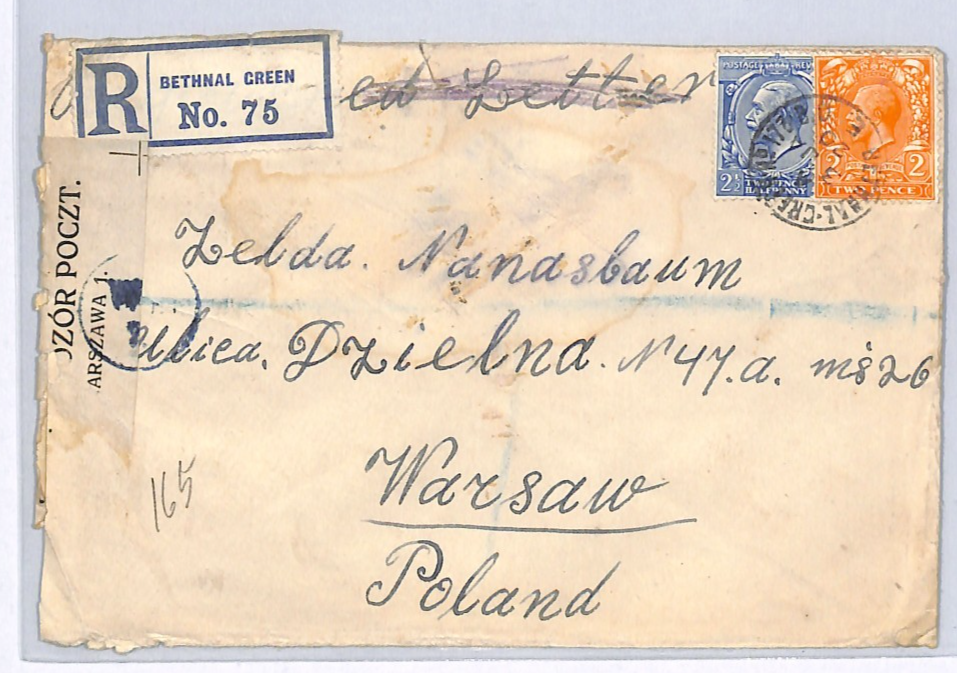 R BETHNAL GREEN
No. 75
ed Letter
POSTAGE REVENUE
2½ TWO PENCE HALFPENNY
2 2 TWO PENCE
BETHNAL-GREEN
ZÓR POCZT.
ARSZAWA 1.
Zelda. Nanasbaum
Ulica. Dzielna. N 47.a. mś 26
Warsaw
Poland
165